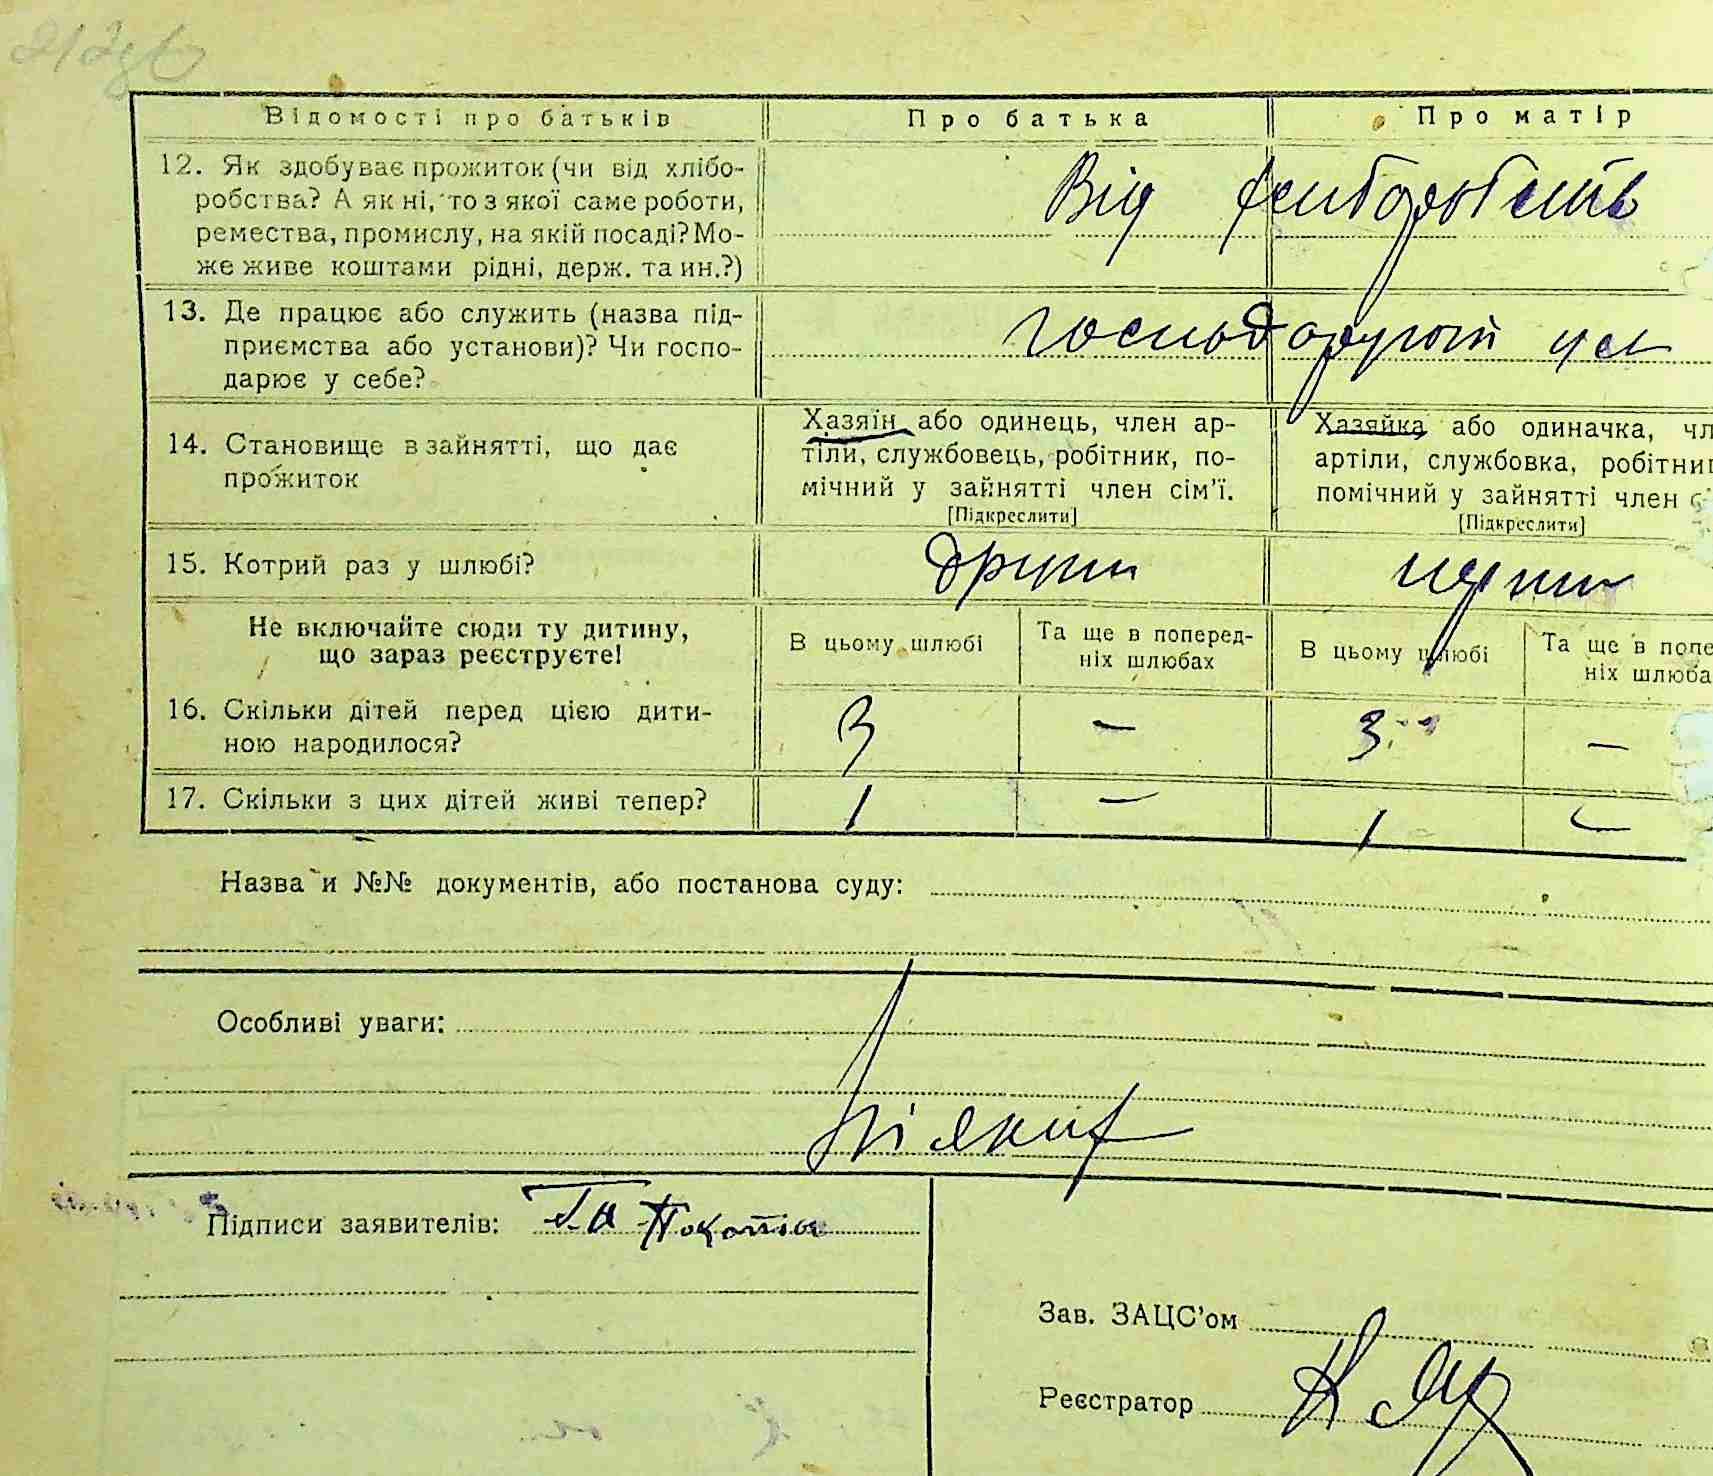 Відомості про батьків Про батька Про матір
12. Як здобуває прожиток (чи від хлібо-
робства? А як ні, то з якої саме роботи,
ремества, промислу, на якій посаді? Мо-
же живе коштами рідні, держ. та ин.?)
Від
13. Де працює або служить (назва під-
приємства або установи)? Чи госпо-
дарює у себе?
14. Становище в зайнятті, що дає
прожиток
Хазяін або одинець, член ар-
тіли, службовець, робітник, по-
мічний у зайнятті член сім'ї.
[Підкреслити]
Хазяйка або одиначка, чл
артіли, службовка, робітниц
помічний у зайнятті член с
[Підкреслити]
15. Котрий раз у шлюбі?
Не включайте сюди ту дитину,
що зараз реєструєте!
В цьому шлюбі
Та ще в поперед-
ніх шлюбах
В цьому шлюбі
Та ще в попе
ніх шлюба
16. Скільки дітей перед цією дити-
ною народилося?
3 — 3 —
17. Скільки з цих дітей живі тепер?
1 — 1 —
Назва и №№ документів, або постанова суду:
Особливі уваги:
Підписи заявителів:
Зав. ЗАЦС'ом
Реєстратор